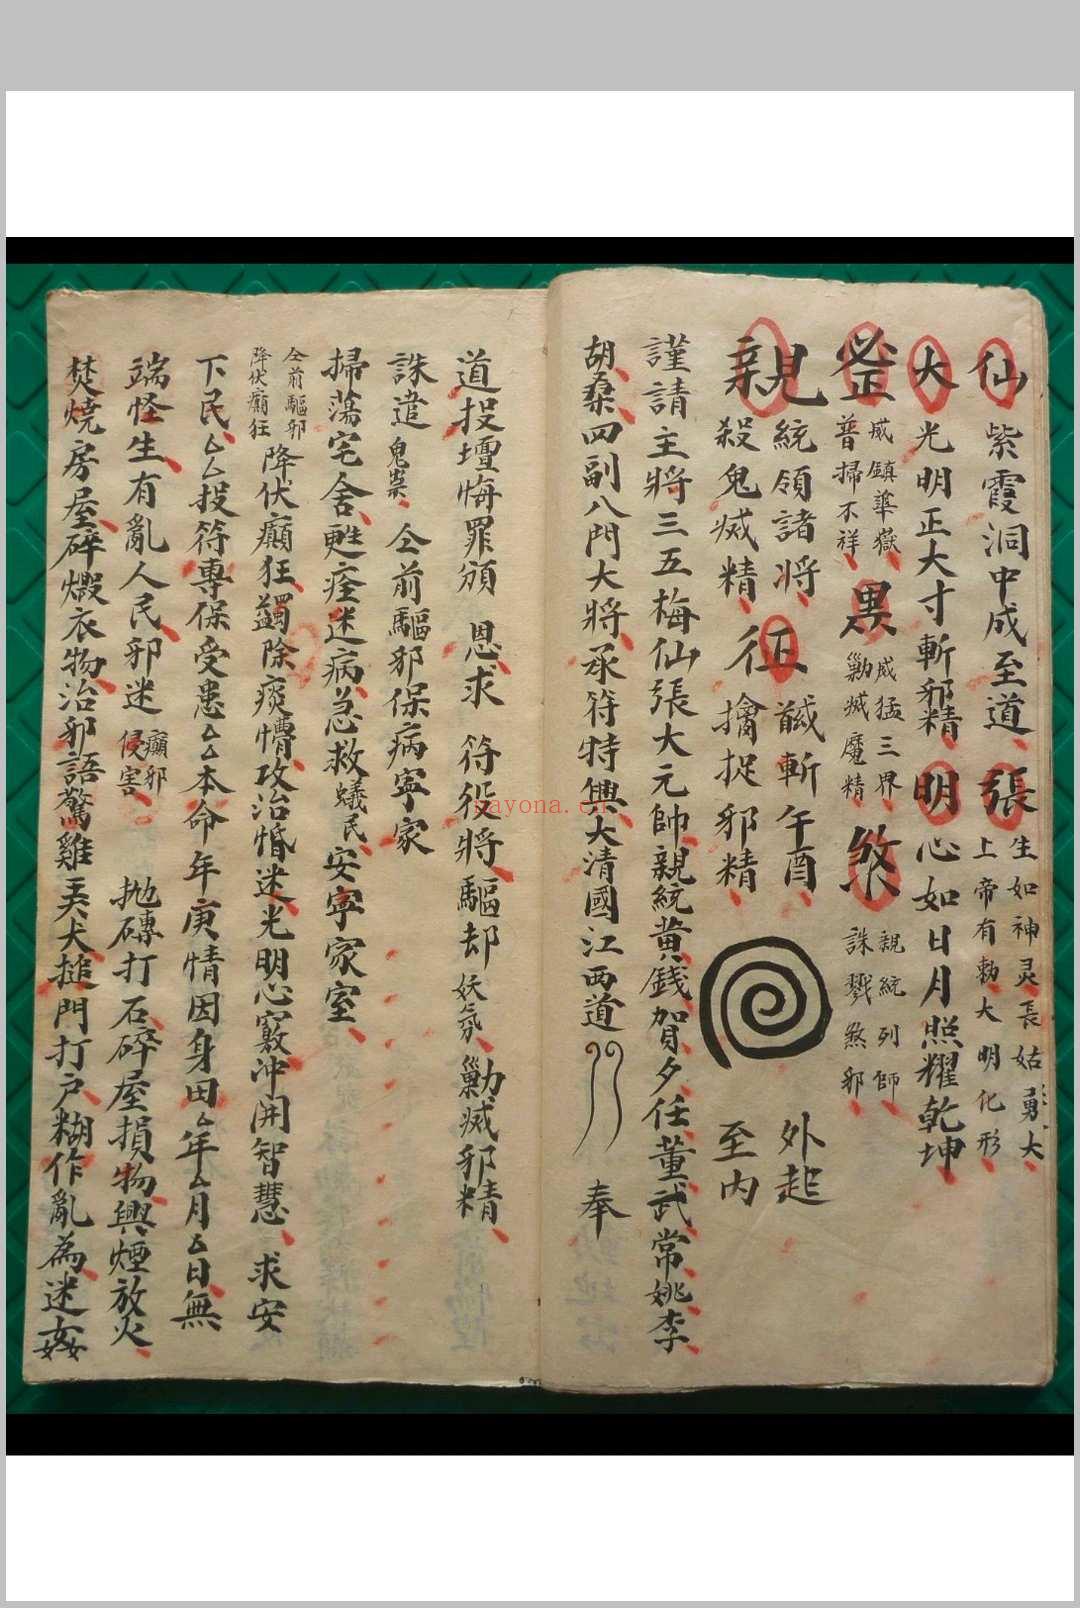 仙 紫霞洞中成至道 張 生如神灵長姑勇大
上帝有勅大明化形
大 光明正大寸斬邪精 明 心如日月照耀乾坤
威鎮華嶽 普掃不祥 黑 威猛三界 勦滅魔精 煞 親統列師 誅戮煞邪
親 統領諸將 殺鬼滅精 征 馘斬午酉 擒捉邪精
外起
至內
謹請主將三五梅仙張大元帥親統黄錢賀夕任董武常姚李
胡桑四副八門大將承符特興大清國江西道 奉
道投壇悔罪頒 恩求 符役將驅却妖氛勦滅邪精
誅遣鬼祟 仝前驅邪保病寧家
掃蕩宅舍甦痊迷病急救蟻民安寧家室
仝前驅邪
降伏癲狂
降伏癲狂蠲除痰懵攻治惛迷光明心竅冲開智慧求安
下民厶厶投符專保受患厶厶本命年庚情因身田厶年厶月厶日無
端怪生有亂人民邪迷 癲邪侵害 拋磚打石碎屋損物興煙放火
焚燒房屋碎煅衣物治邪語驚雞关犬搥門打户糊作亂為迷姦
nayona.cn